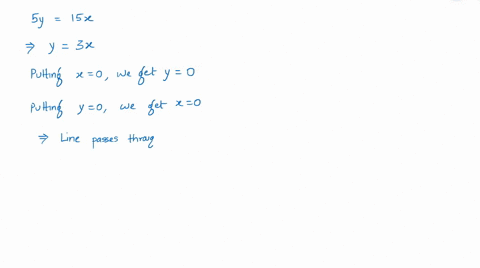 5y = 15x
⇒ y = 3x
Putting x=0, we get y = 0
Putting y=0, we get x=0
⇒ Line passes throug